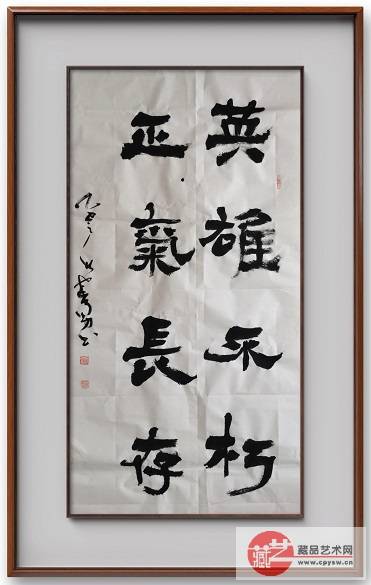 英雄不朽
正氣長存
藏品艺术网
www.cpysw.cn